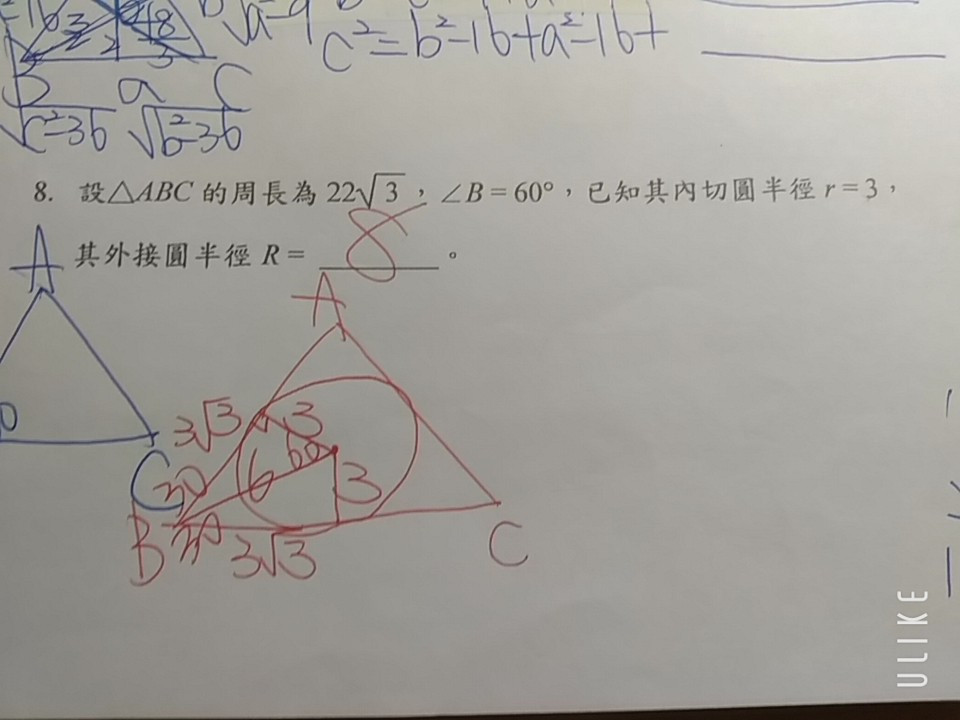 B a C
c²=b²-16+a²-16+
√c²-36 √b²-36
8. 設△ABC 的周長為 22√3，∠B=60°，已知其內切圓半徑 r=3，
其外接圓半徑 R= 8 。
A
A
3√3 3
60
6
C 30 3
B 30 3√3 C
ULIKE